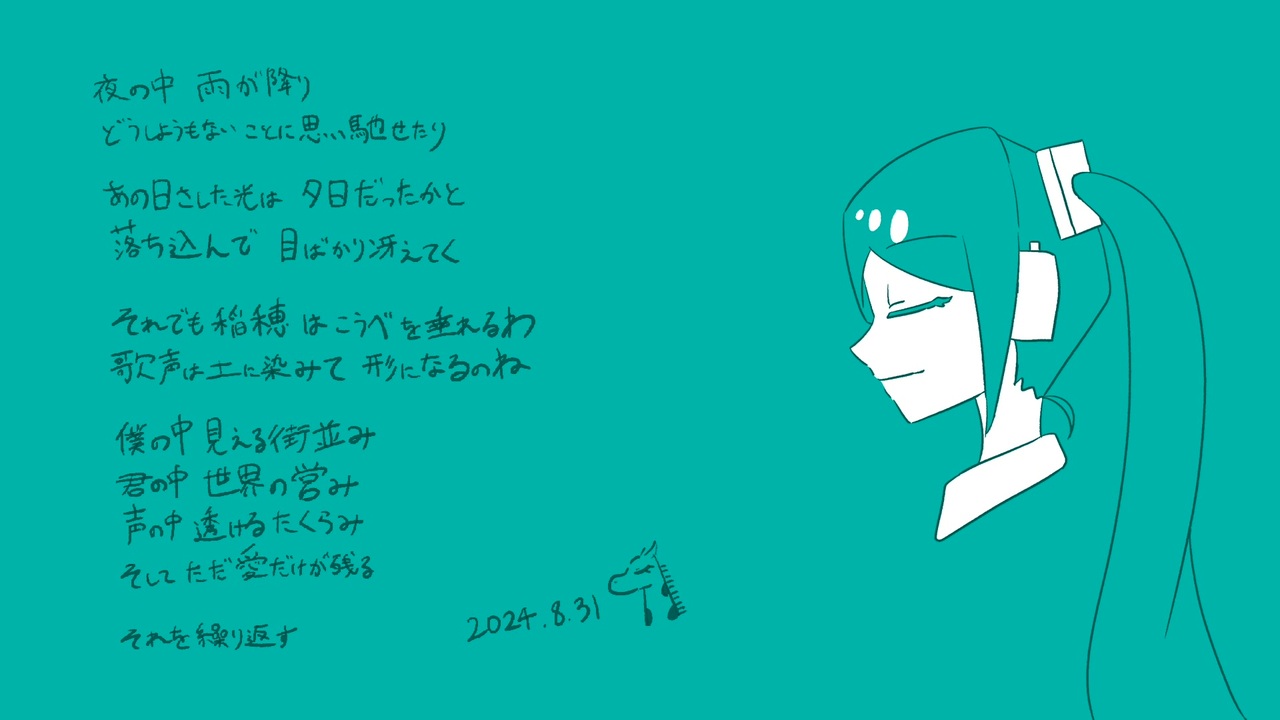 夜の中 雨が降り
どうしようもない ことに思い馳せたり
あの日さした光は 夕日だったかと
落ち込んで 目ばかり冴えてく
それでも稲穂はこうべを垂れるわ
歌声は土に染みて 形になるのね
僕の中 見える街並み
君の中 世界の営み
声の中 透けるたくらみ
そして ただ愛だけが残る
それを繰り返す
2024.8.31